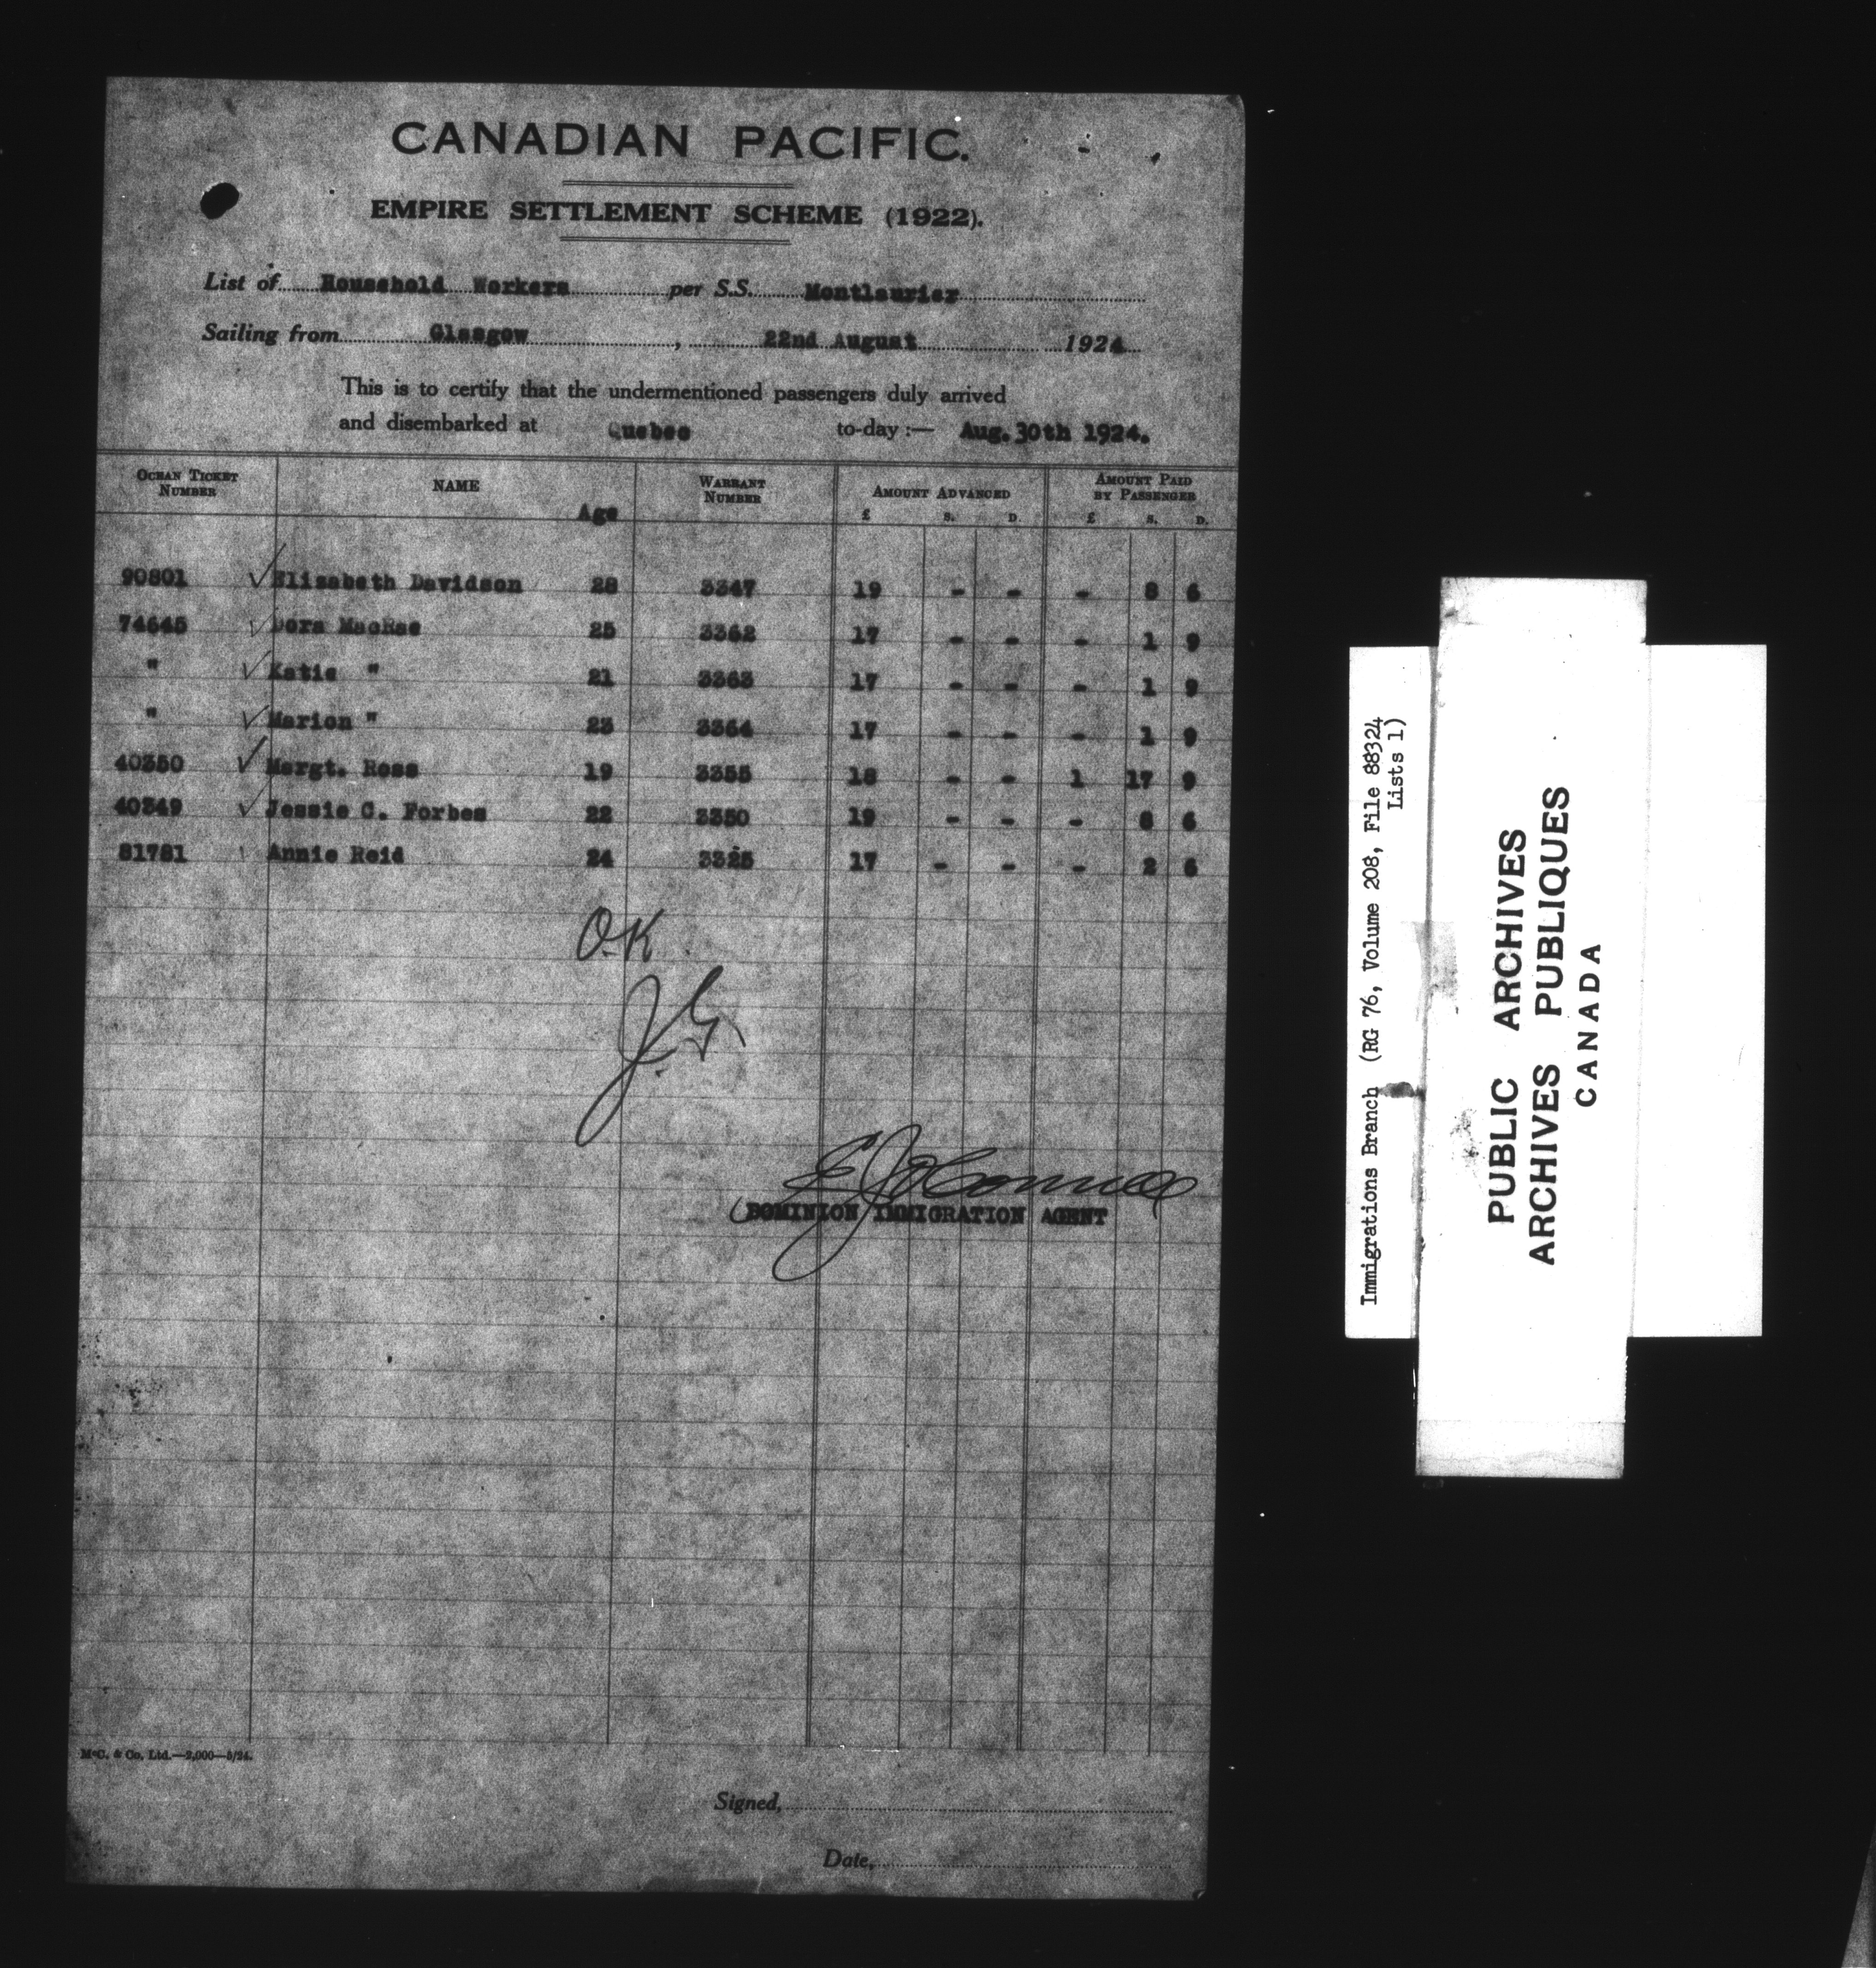 CANADIAN PACIFIC.
EMPIRE SETTLEMENT SCHEME (1922).
List of Household Workers per S.S. Montlaurier
Sailing from Glasgow, 22nd August 1924
This is to certify that the undermentioned passengers duly arrived
and disembarked at Quebec to-day :— Aug. 30th 1924.
OCEAN TICKET NUMBER NAME Age WARRANT NUMBER AMOUNT ADVANCED £ S. D. AMOUNT PAID BY PASSENGER £ S. D.
90801 Elizabeth Davidson 28 3347 19 - - - 8 6
74645 Dora MacRae 25 3362 17 - - - 1 9
" Katie " 21 3363 17 - - - 1 9
" Marion " 23 3364 17 - - - 1 9
40350 Margt. Ross 19 3355 18 - - 1 17 9
40349 Jessie C. Forbes 22 3350 19 - - - 8 6
81781 Annie Reid 24 3325 17 - - - 2 6
O.K.
J.G.
DOMINION IMMIGRATION AGENT
McC. & Co. Ltd.—2,000—5/24.
Signed,
Date,
Immigrations Branch (RG 76, Volume 208, File 88324
Lists 1)
PUBLIC ARCHIVES
ARCHIVES PUBLIQUES
CANADA